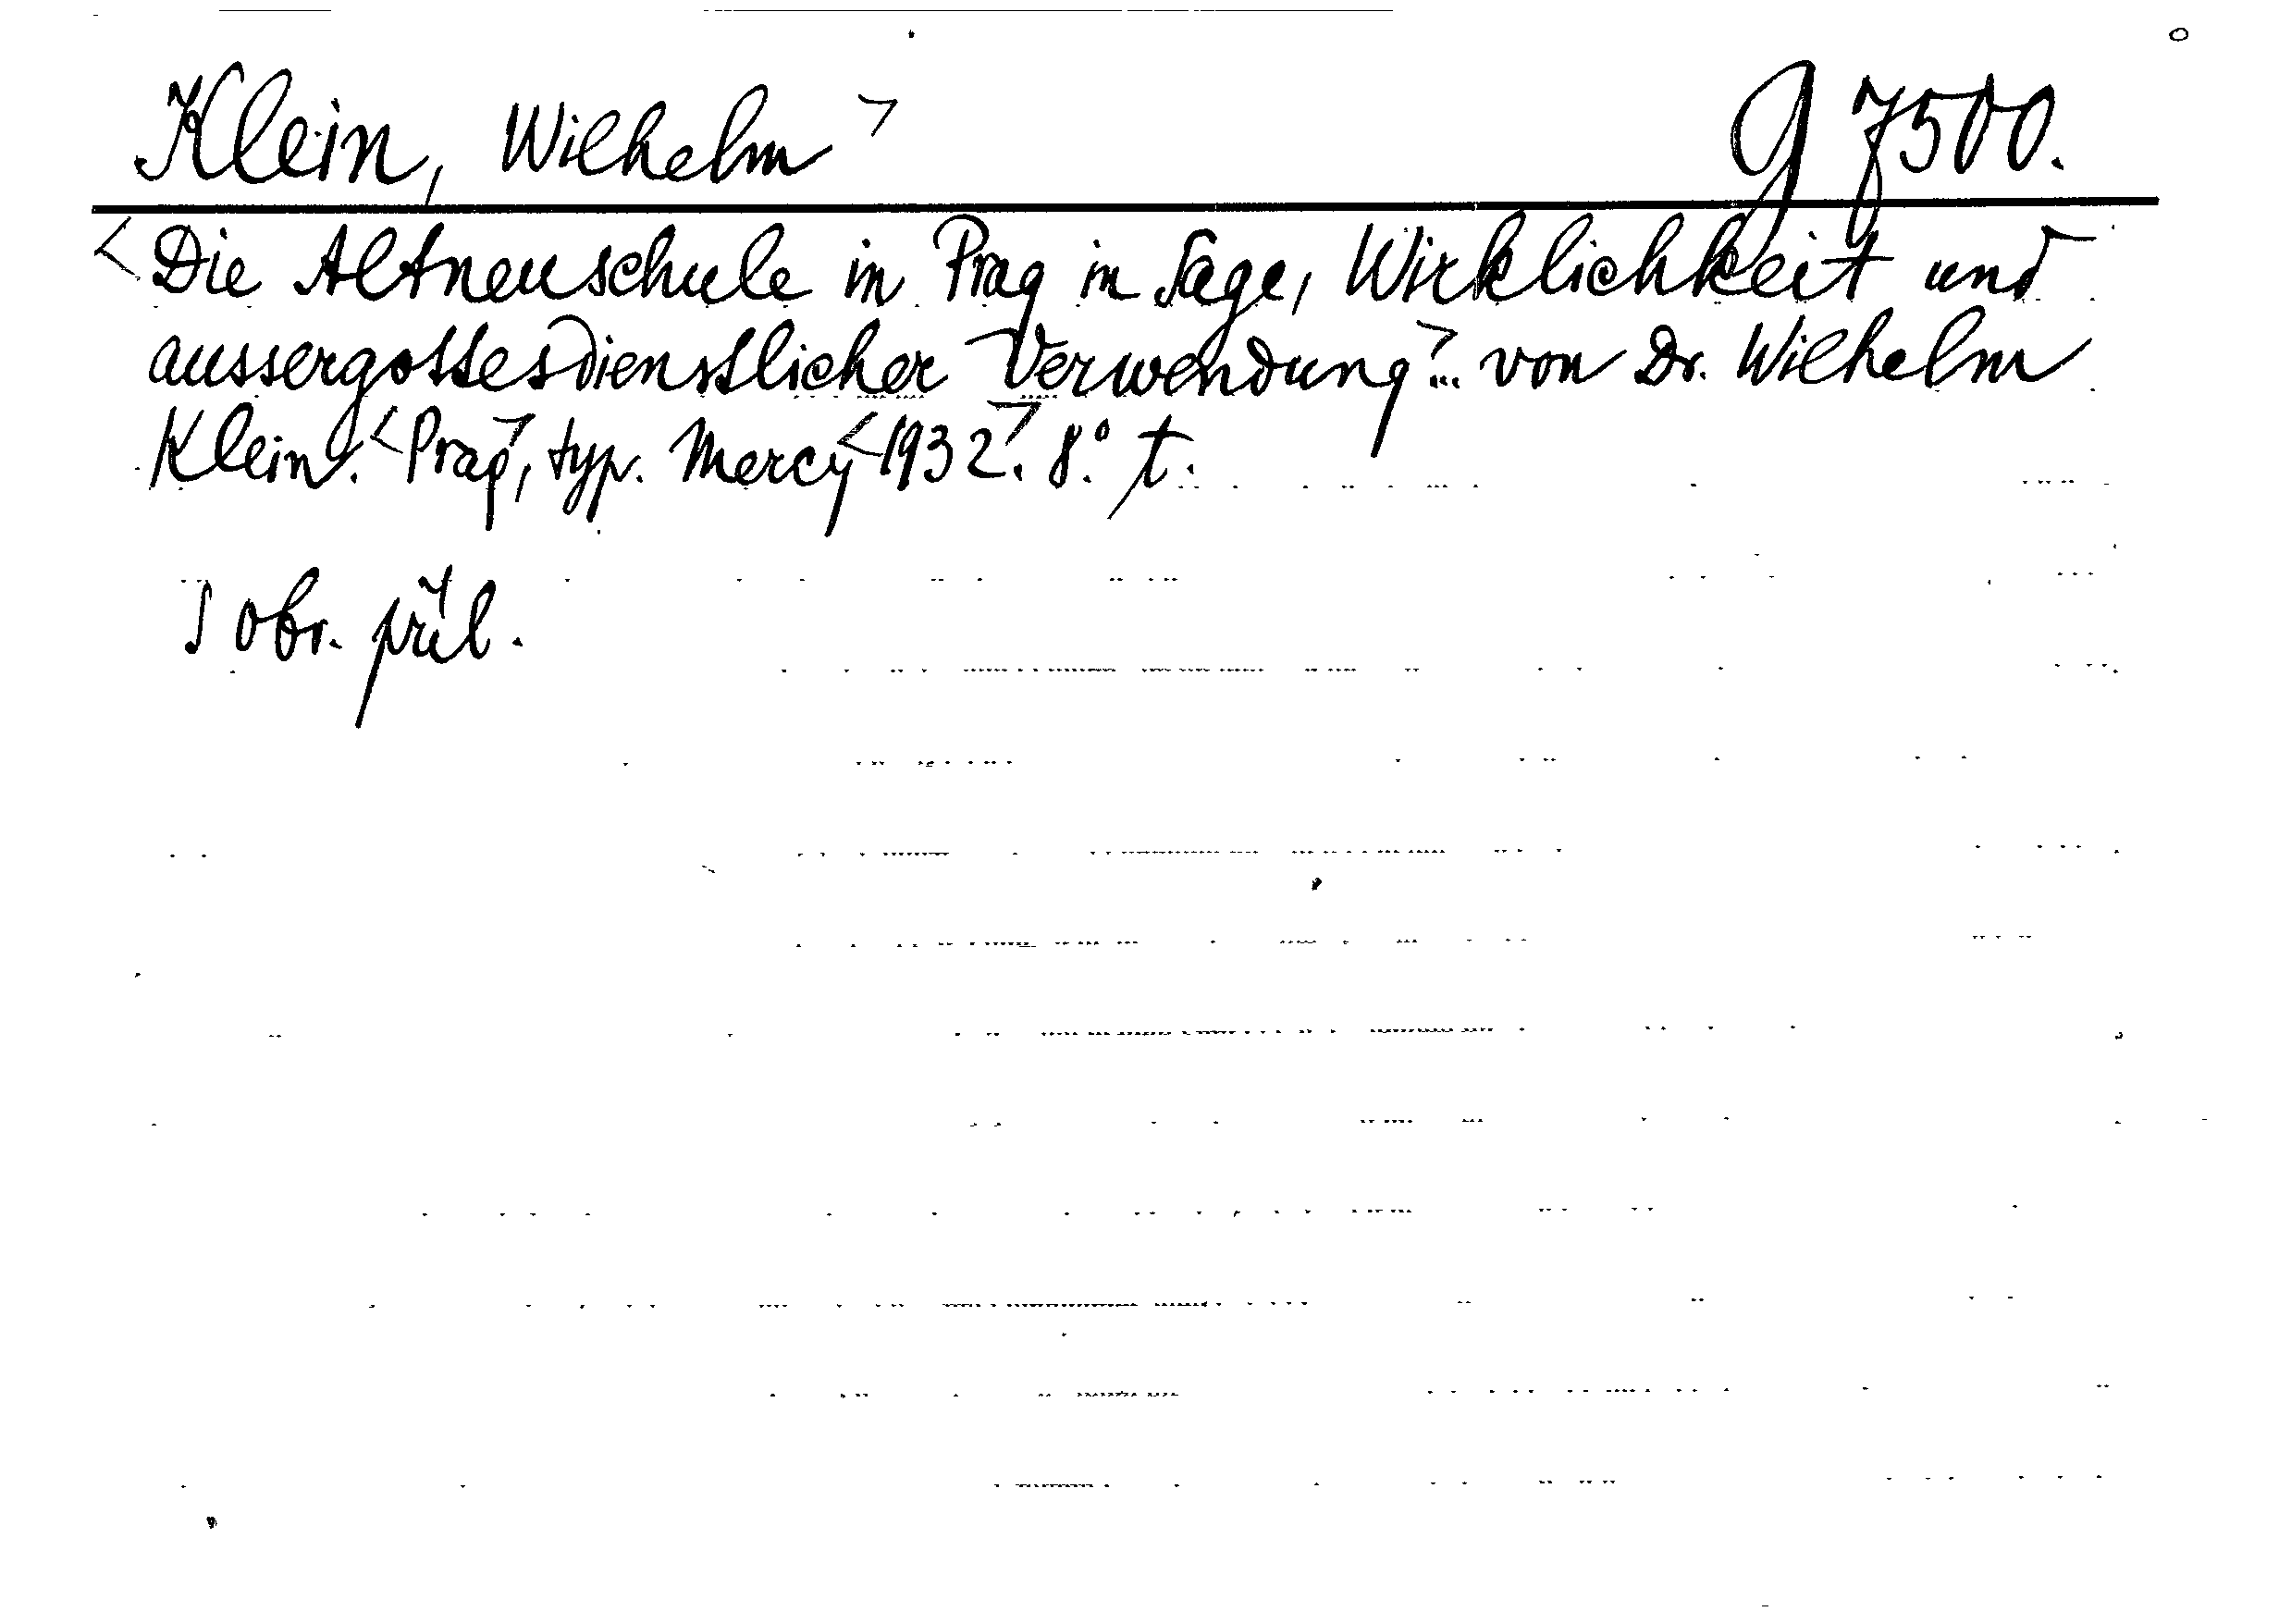 Klein, Wilhelm> g 7500.
<Die Altneuschule in Prag in Sage, Wirklichkeit und
aussergottesdienstlicher Verwendung>... von Dr. Wilhelm
Klein. <Prag>, typ. Mercy <1932>. 8.° t.
S obr. příl.